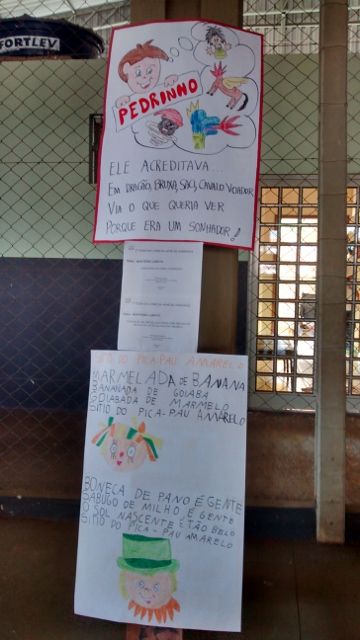 FORTLEV
PEDRINHO
ELE ACREDITAVA...
EM DRAGÃO, BRUXA, SACI, CAVALO VOADOR
VIA O QUE QUERIA VER
PORQUE ERA UM SONHADOR!
SÍTIO DO PICA-PAU AMARELO
MARMELADA DE BANANA
BANANADA DE GOIABA
GOIABADA DE MARMELO
SITIO DO PICA-PAU AMARELO
BONECA DE PANO É GENTE
SABUGO DE MILHO É GENTE
O SOL NASCENTE É TÃO BELO
SITIO DO PICA-PAU AMARELO